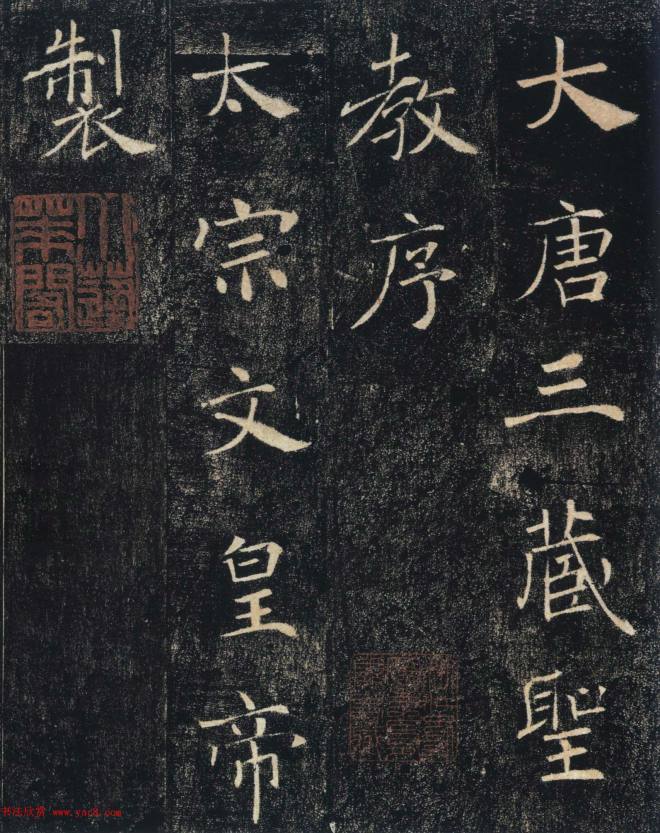 大唐三藏聖
教序
太宗文皇帝
製
书法欣赏 www.yac8.com